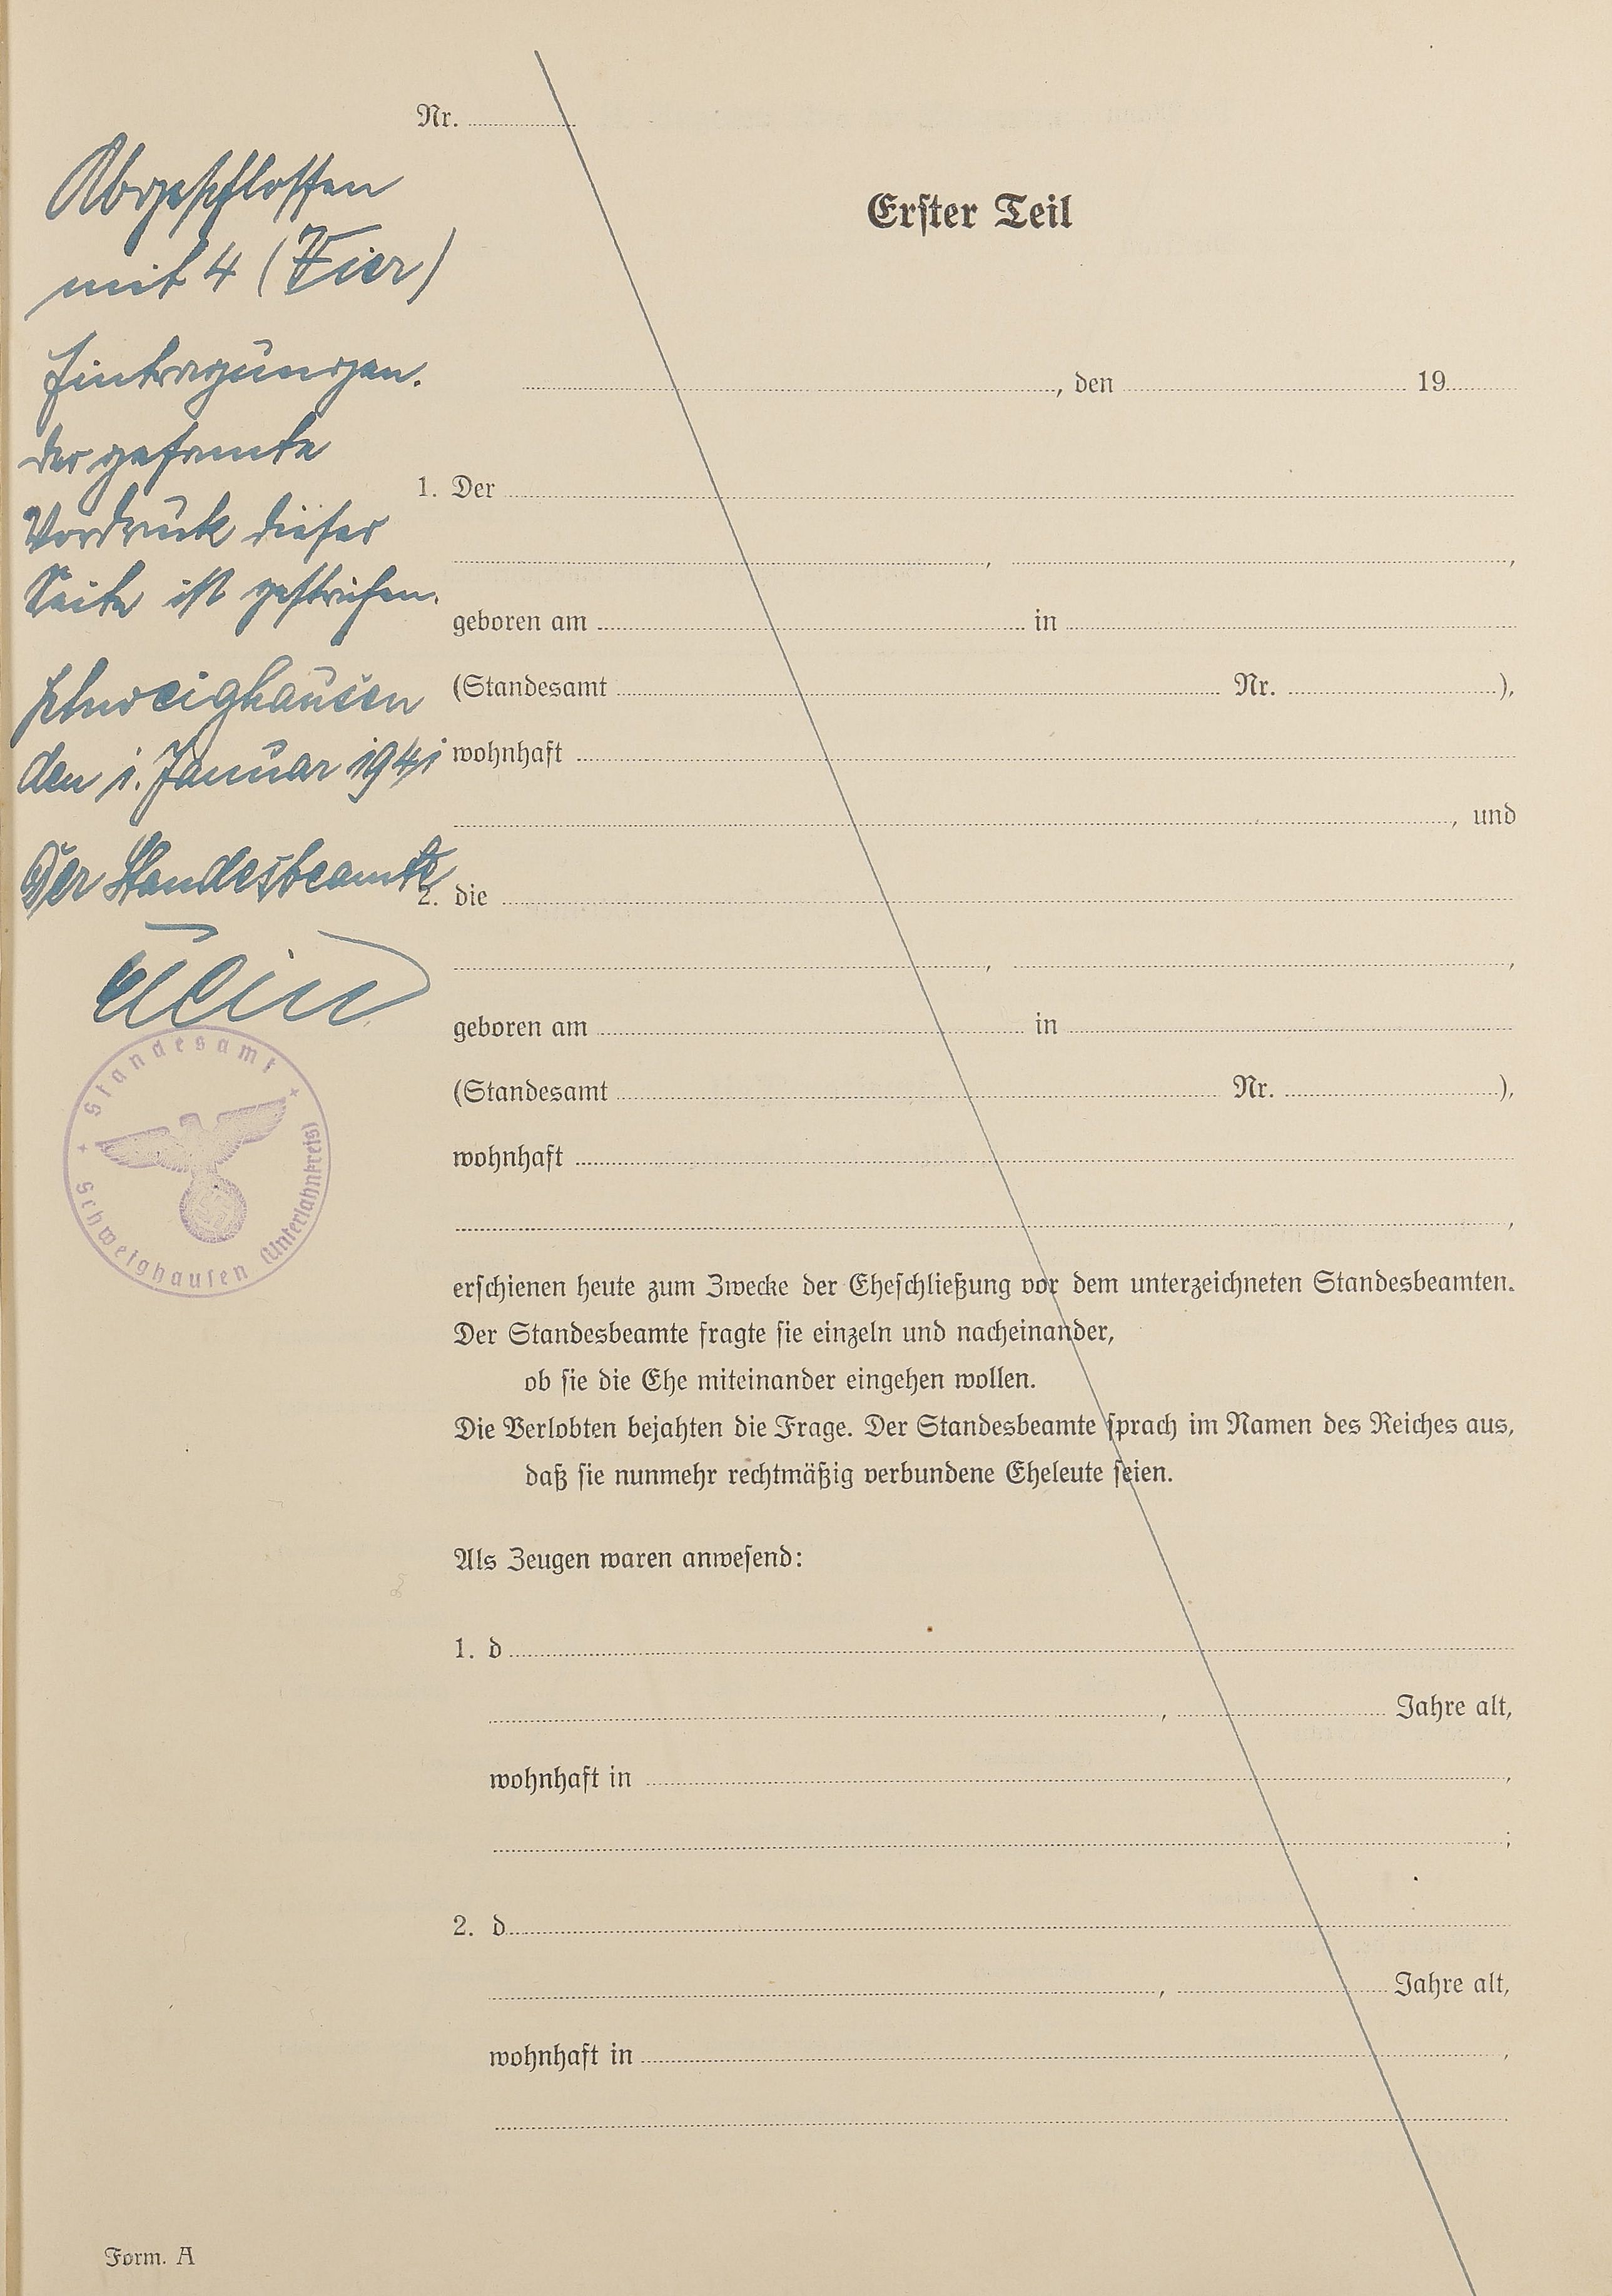 Nr.
Erster Teil
Abgeschlossen
mit 4 (Vier)
Eintragungen.
Der gesamte
Vordruck dieser
Seite ist gestrichen.
Schweighausen
den 1. Januar 1941
Der Standesbeamte
Klein
Standesamt
Schweighausen (Unterlahnkreis)
, den 19
1. Der
, ,
geboren am in
(Standesamt Nr. ),
wohnhaft
, und
2. die
, ,
geboren am in
(Standesamt Nr. ),
wohnhaft
,
erschienen heute zum Zwecke der Eheschließung vor dem unterzeichneten Standesbeamten.
Der Standesbeamte fragte sie einzeln und nacheinander,
ob sie die Ehe miteinander eingehen wollen.
Die Verlobten bejahten die Frage. Der Standesbeamte sprach im Namen des Reiches aus,
daß sie nunmehr rechtmäßig verbundene Eheleute seien.
Als Zeugen waren anwesend:
1. d
, Jahre alt,
wohnhaft in ,
;
2. d
, Jahre alt,
wohnhaft in ,
Form. A